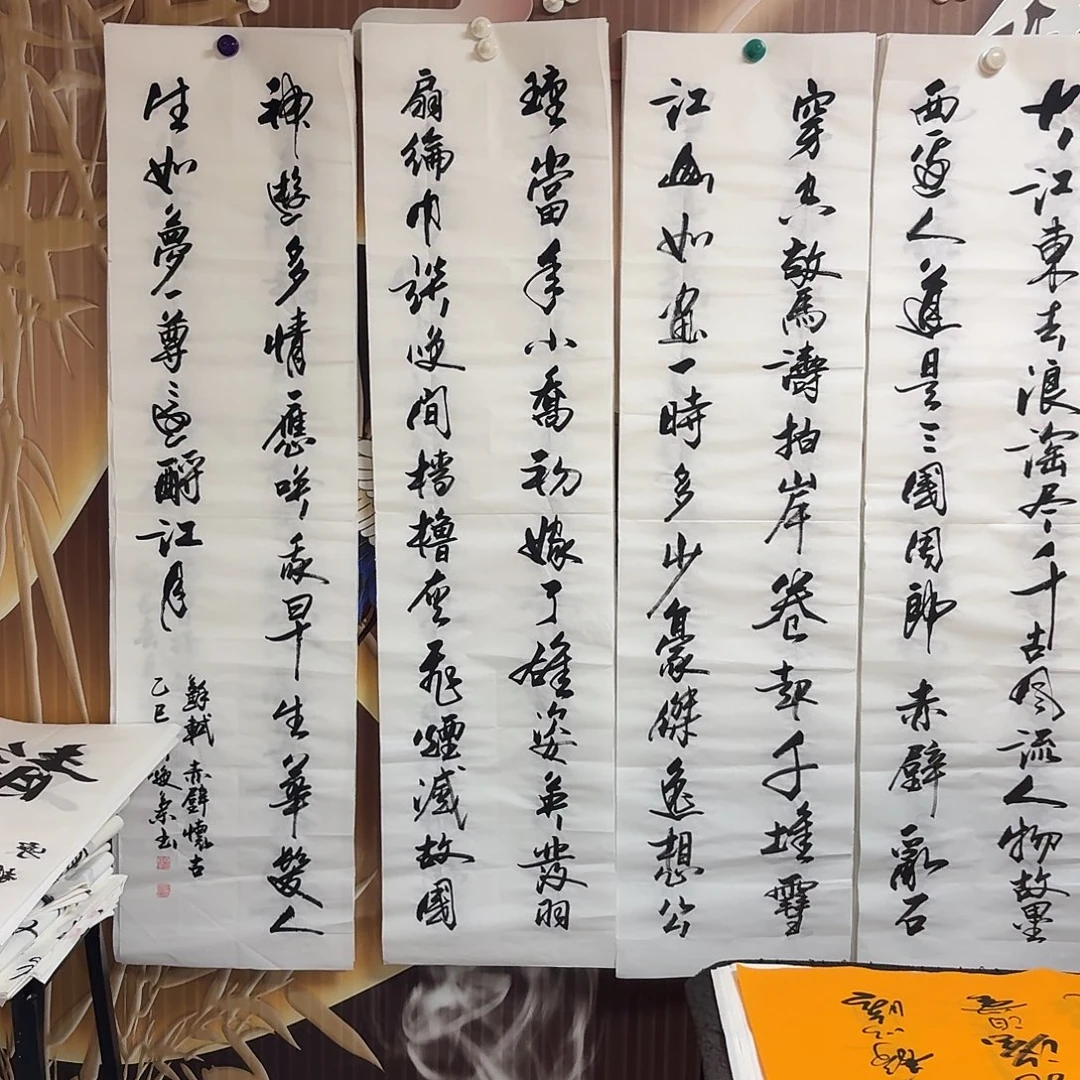 大江東去浪淘尽千古风流人物故壘
西邊人道是三國周郎赤壁亂石
穿空驚濤拍岸卷起千堆雪
江山如畫一時多少豪傑遙想公
瑾當年小喬初嫁了雄姿英發羽
扇綸巾談咲間檣櫓灰飛煙滅故國
神遊多情應咲我早生華髮人
生如夢一尊還酹江月
蘇軾 赤壁懷古
乙巳 书
清